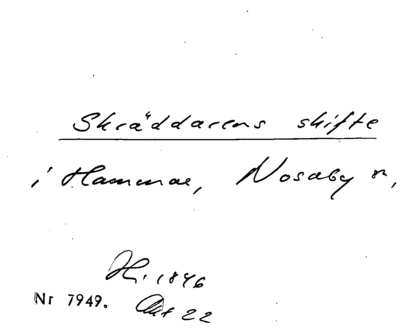 Skräddarens skifte
i Hammar, Nosaby sn,
H. 1846
Nr 7949. Akt 22